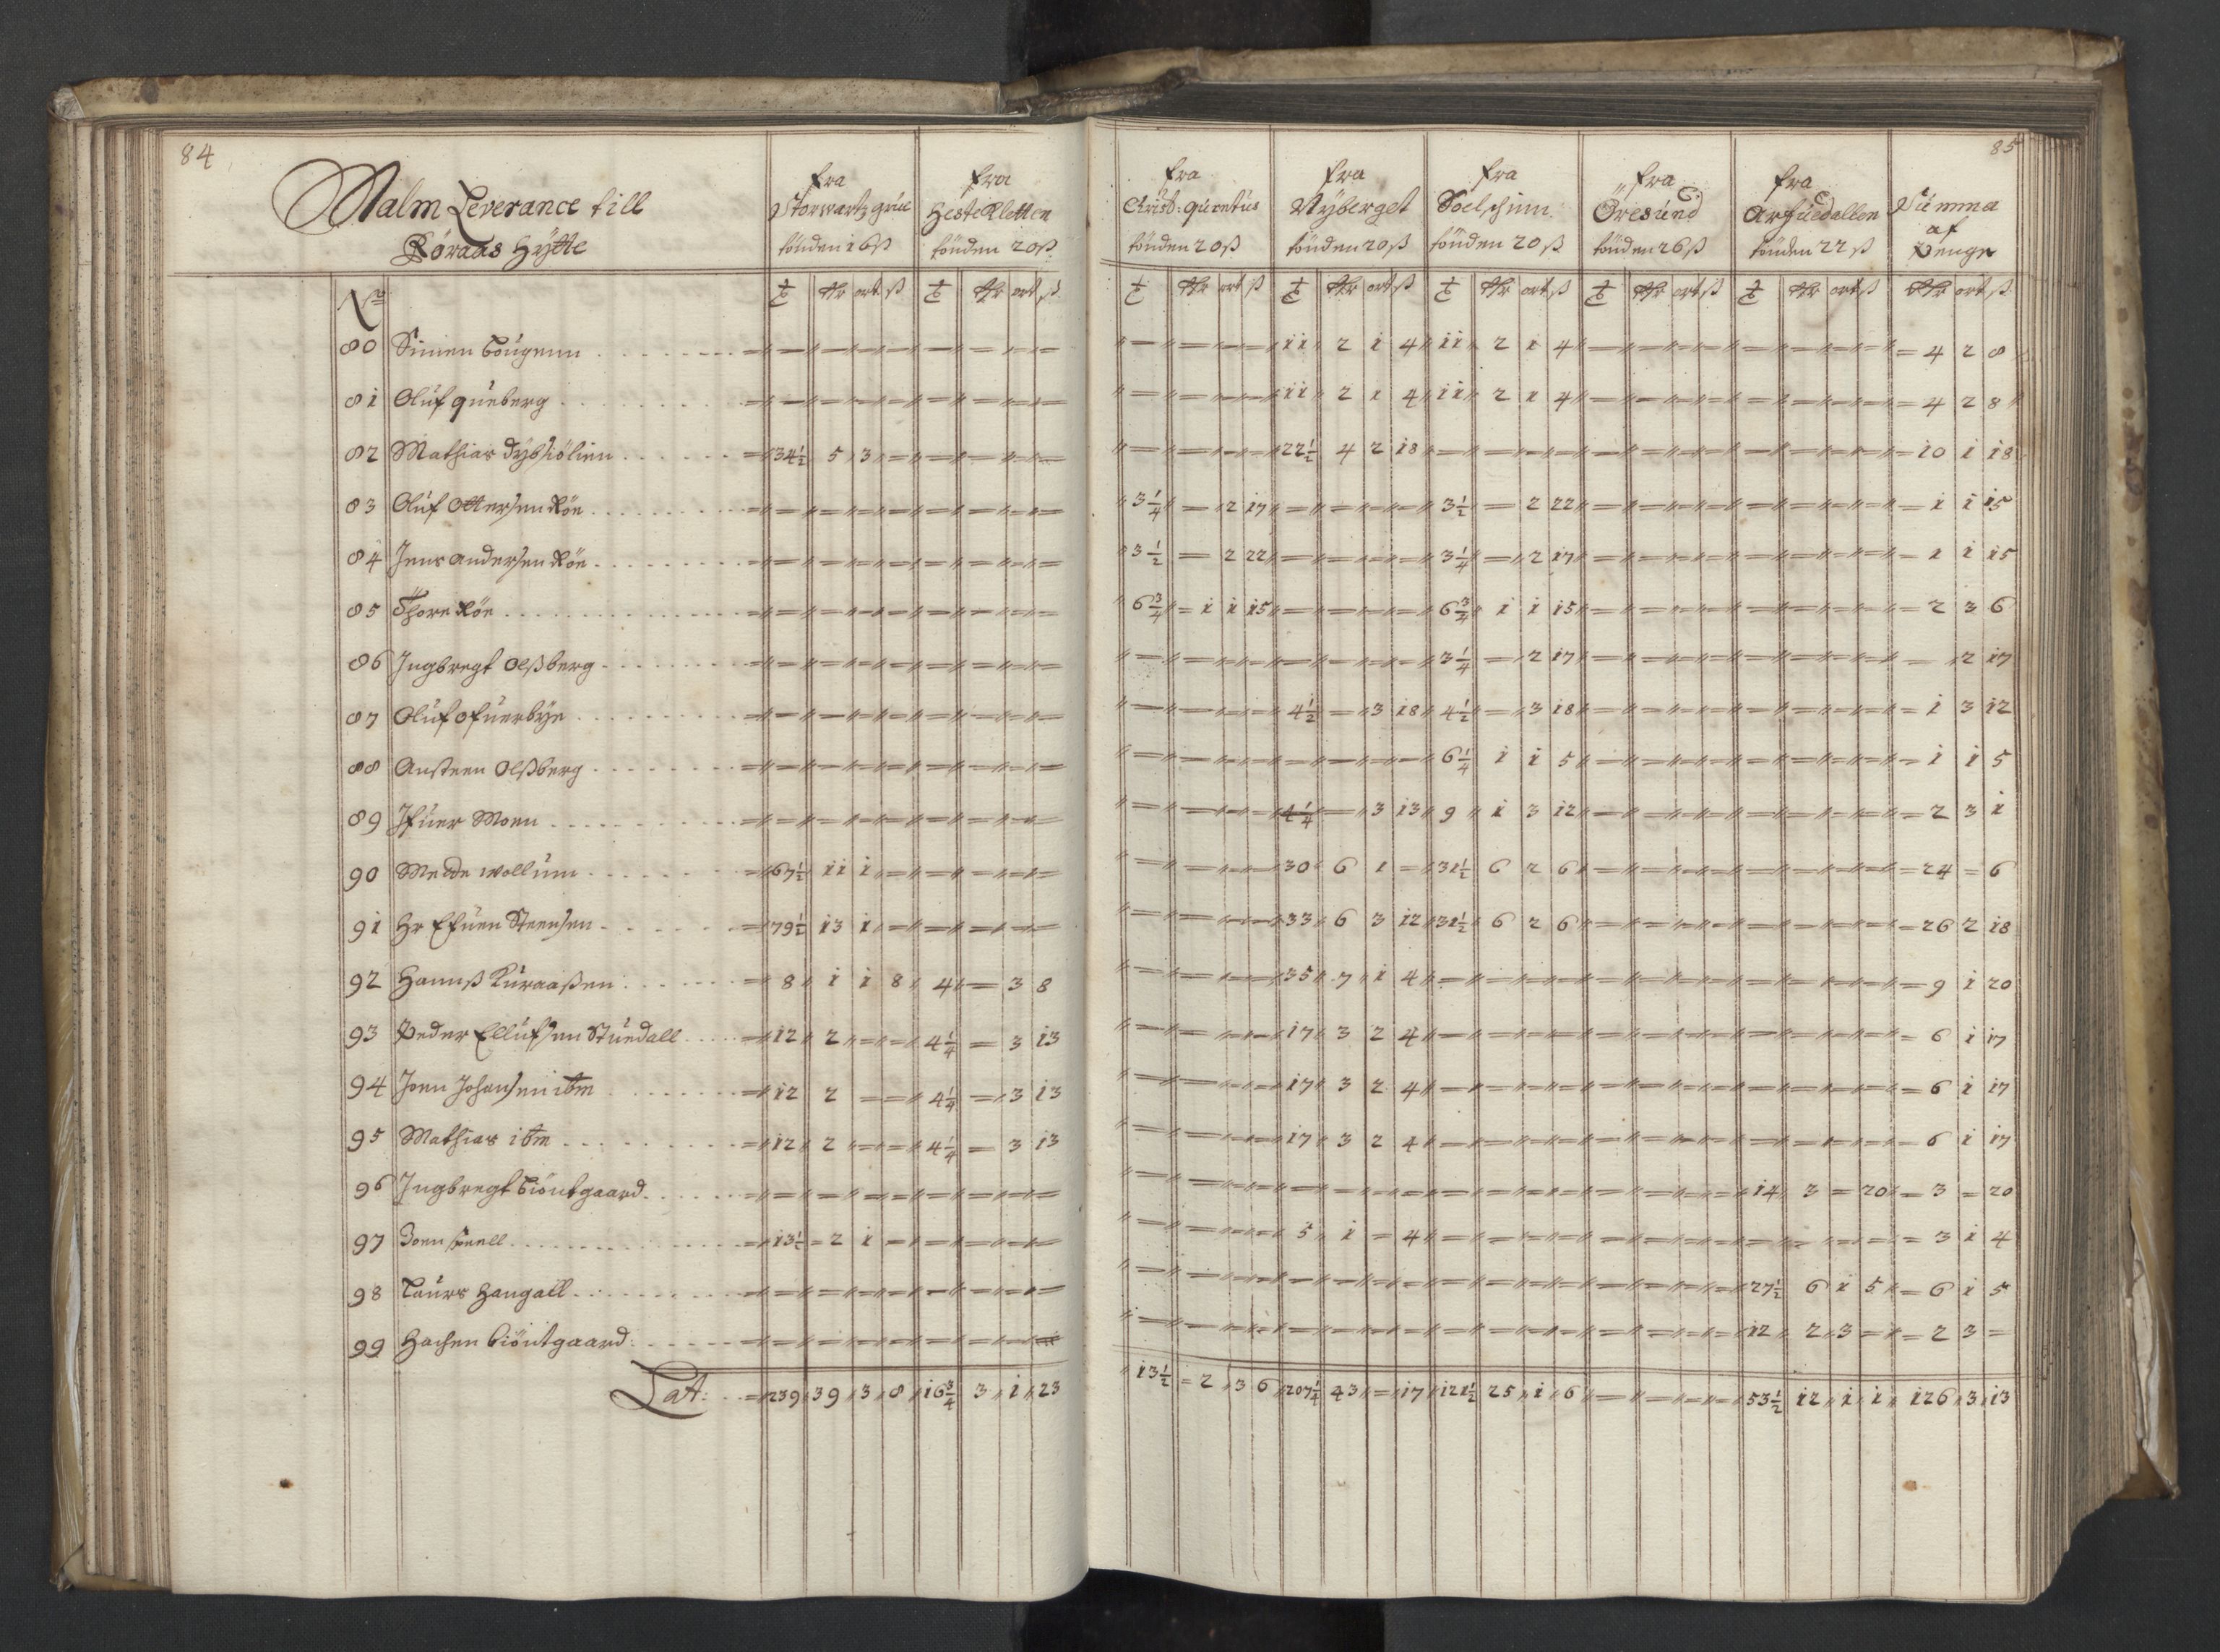 84
Malm Leverance till
Røraas Hÿtte
fra
Storwartz grue
tönden 16 ß
fra
HesteKletten
tönden 20 ß
fra
Christ: qvintus
tönden 20 ß
fra
Nÿberget
tönden 20 ß
fra
tönden 20 ß
fra
Öresund
tönden 26 ß
fra
Arfuedallen
tönden 22 ß
Summa
af
Penge
85
No
ort ß ort ß ort ß ort ß ort ß ort ß ort ß ort ß
80 Simen 11 2 1 4 11 2 1 4 4 2 8
81 Oluf queberg 11 2 1 4 11 2 1 4 4 2 8
82 Mathias Dybsiölien 34½ 5 3 22½ 4 2 18 10 1 18
83 Oluf Ottersen Röe 3¼ 2 17 3½ 2 22 1 1 15
84 Jens Andersen Röe 3½ 2 22 3¼ 2 17 1 1 15
85 Thore Röe 6¾ 1 1 15 6¾ 1 1 15 2 3 6
86 Ingbregt Olßberg 3¼ 2 17 2 17
87 Oluf Ofuerbÿe 4½ 3 18 4½ 3 18 1 3 12
88 Austeen Olßberg 6¼ 1 1 5 1 1 5
89 Ifuer Moen 4¼ 3 13 9 1 3 12 2 3 1
90 Wollum 67½ 11 1 30 6 1 31½ 6 2 6 24 6
91 Hr Efuen Steensen 79½ 13 1 33 6 3 12 31½ 6 2 6 26 2 18
92 Hannß Kuraaßen 8 1 1 8 4 3 8 35 7 1 4 9 1 20
93 Peder Ellufsen Stuedall 12 2 4¼ 3 13 17 3 2 4 6 1 17
94 Joen Johansen itm 12 2 4¼ 3 13 17 3 2 4 6 1 17
95 Mathias itm 12 2 4¼ 3 13 17 3 2 4 6 1 17
96 Ingbregt Biöntgaard 14 3 20 3 20
97 Joen 13½ 2 1 5 1 4 3 1 4
98 Laurs Hangall 27½ 6 1 5 6 1 5
99 Hachen Biöntgaard 12 2 3 2 3
Lat: 239 39 3 8 16¾ 3 1 23 13½ 2 3 6 207¼ 43 17 121½ 25 1 6 53½ 12 1 1 126 3 13